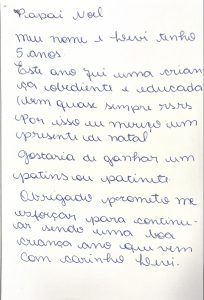 Papai Noel
meu nome e Levi tenho
5 anos
Este ano fui uma crian
ça obediente e educada
(bem quase sempre rsrs
Por isso eu mereço um
presente de natal
Gostaria de ganhar um
patins ou patinete
Obrigado prometo me
esforçar para continu
ar sendo uma boa
criança ano que vem
com carinho Levi.